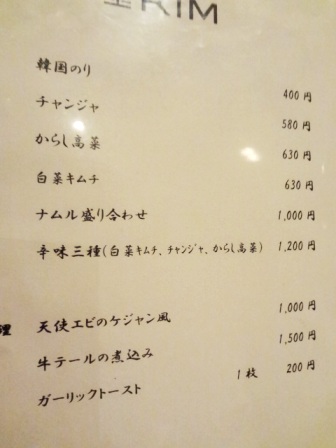 KIM
韓国のり 400円
チャンジャ 580円
からし高菜 630円
白菜キムチ 630円
ナムル盛り合わせ 1,000円
辛味三種(白菜キムチ、チャンジャ、からし高菜) 1,200円
理
天使エビのケジャン風 1,000円
牛テールの煮込み 1,500円
ガーリックトースト 1枚 200円